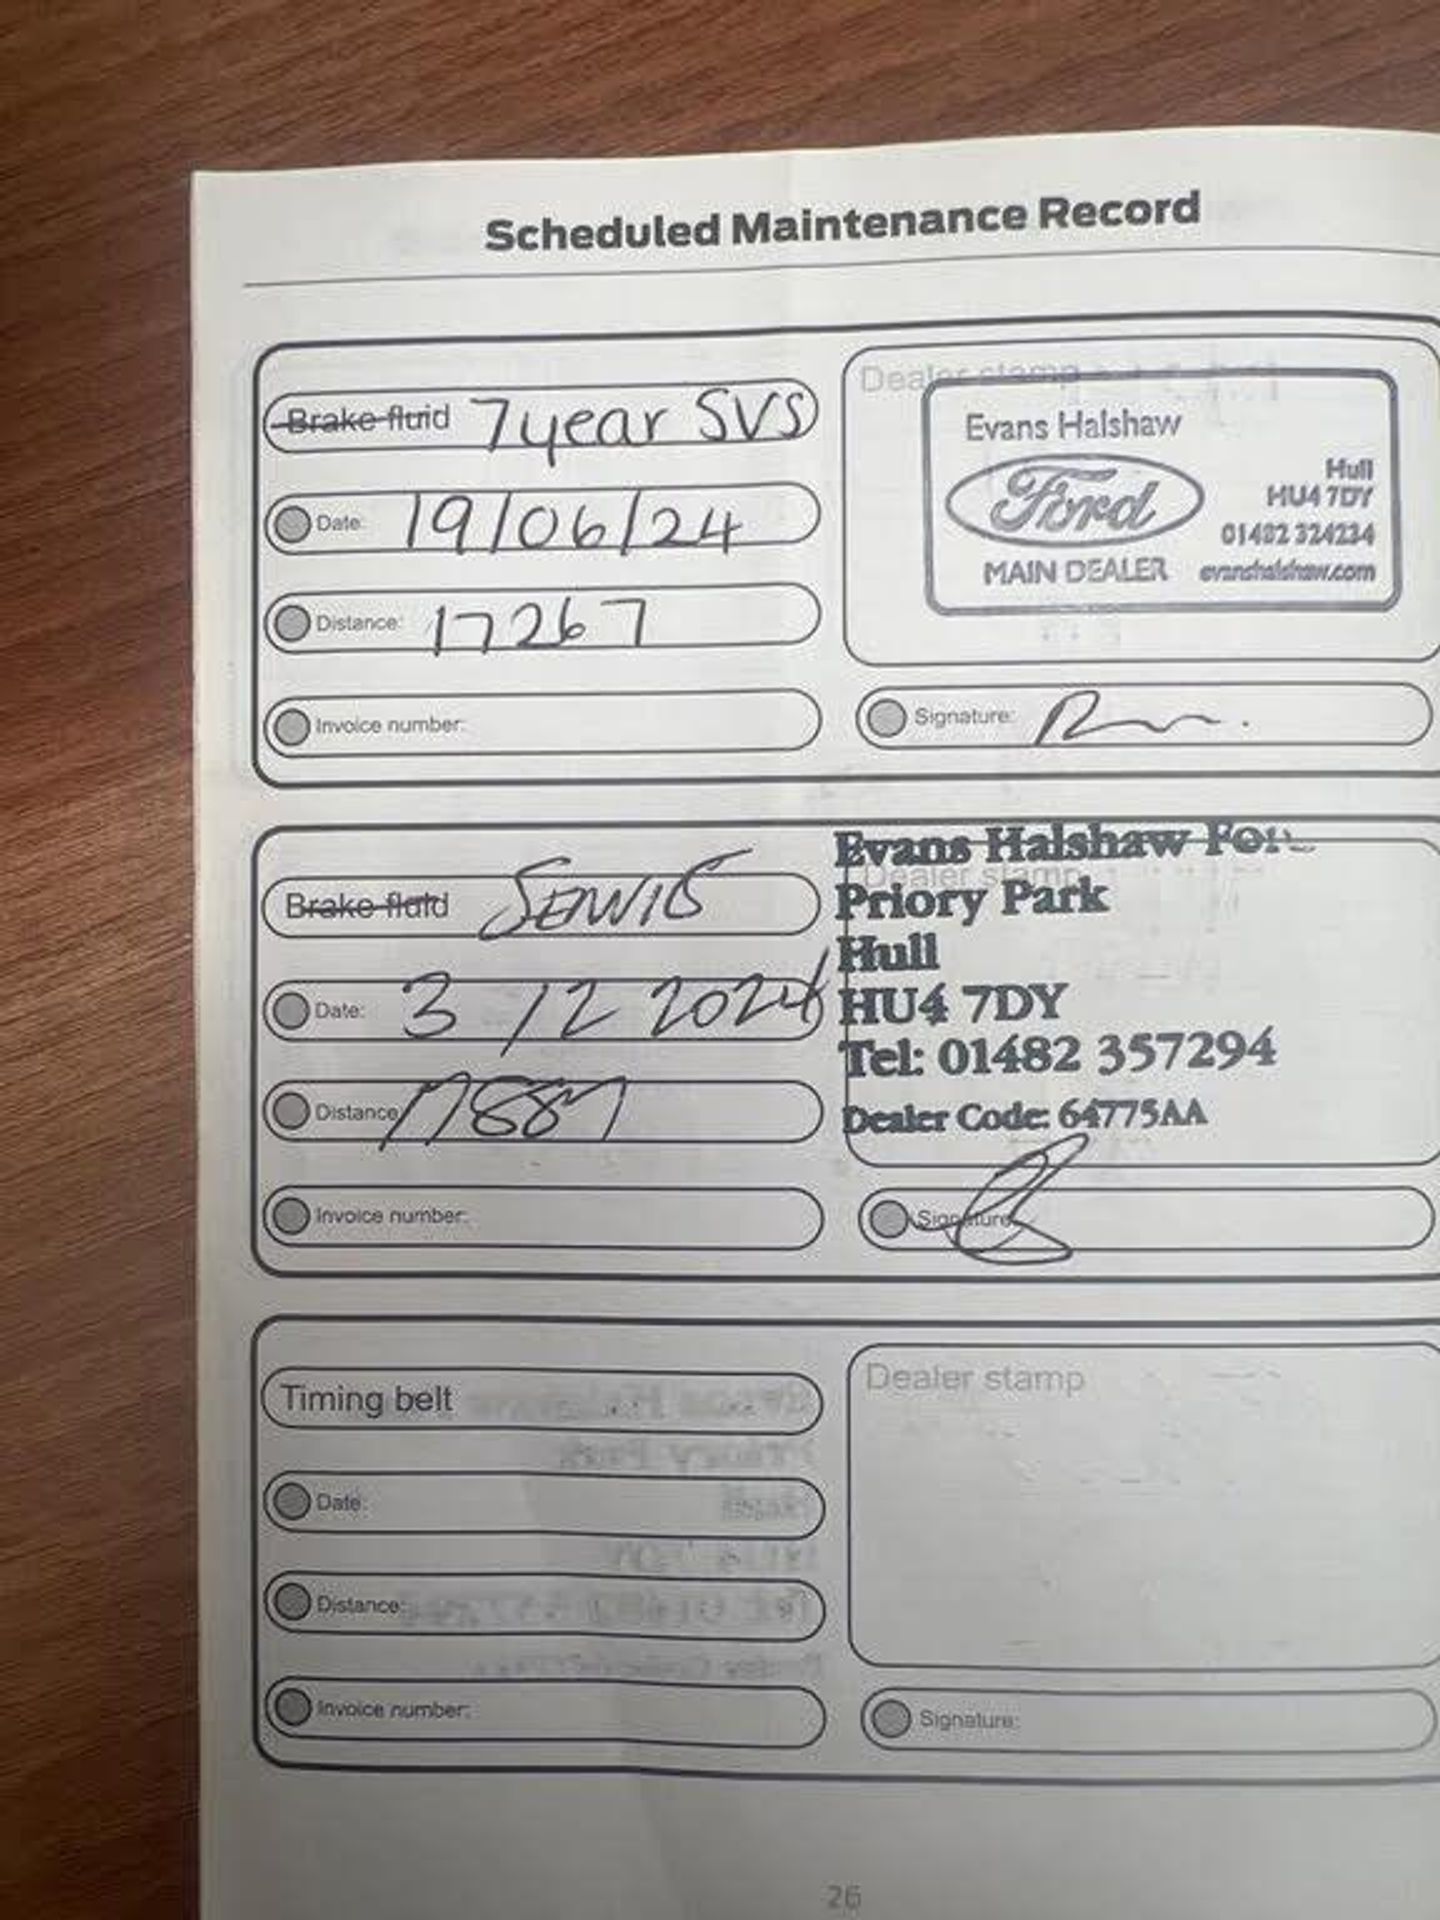 Scheduled Maintenance Record
Brake fluid 7 year SVS
Date: 19/06/24
Distance: 17267
Invoice number:
Dealer stamp
Evans Halshaw
Ford
MAIN DEALER
Hull
HU4 7DY
01482 324234
evanshalshaw.com
Signature:
Brake fluid
Date: 3/12 2024
Distance: 17887
Invoice number:
Dealer stamp
Evans Halshaw
Priory Park
Hull
HU4 7DY
Tel: 01482 357294
Dealer Code: 64775AA
Signature:
Timing belt
Date:
Distance:
Invoice number:
Dealer stamp
Signature:
26